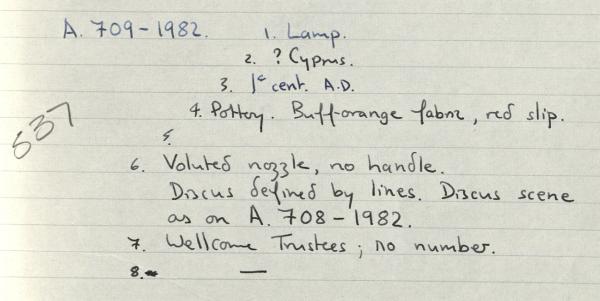 A. 709-1982. 1. Lamp.
2. ? Cyprus.
3. 1st cent. A.D.
4. Pottery. Buff-orange fabric, red slip.
537
5.
6. Voluted nozzle, no handle.
Discus defined by lines. Discus scene
as on A. 708-1982.
7. Wellcome Trustees; no number.
8. —